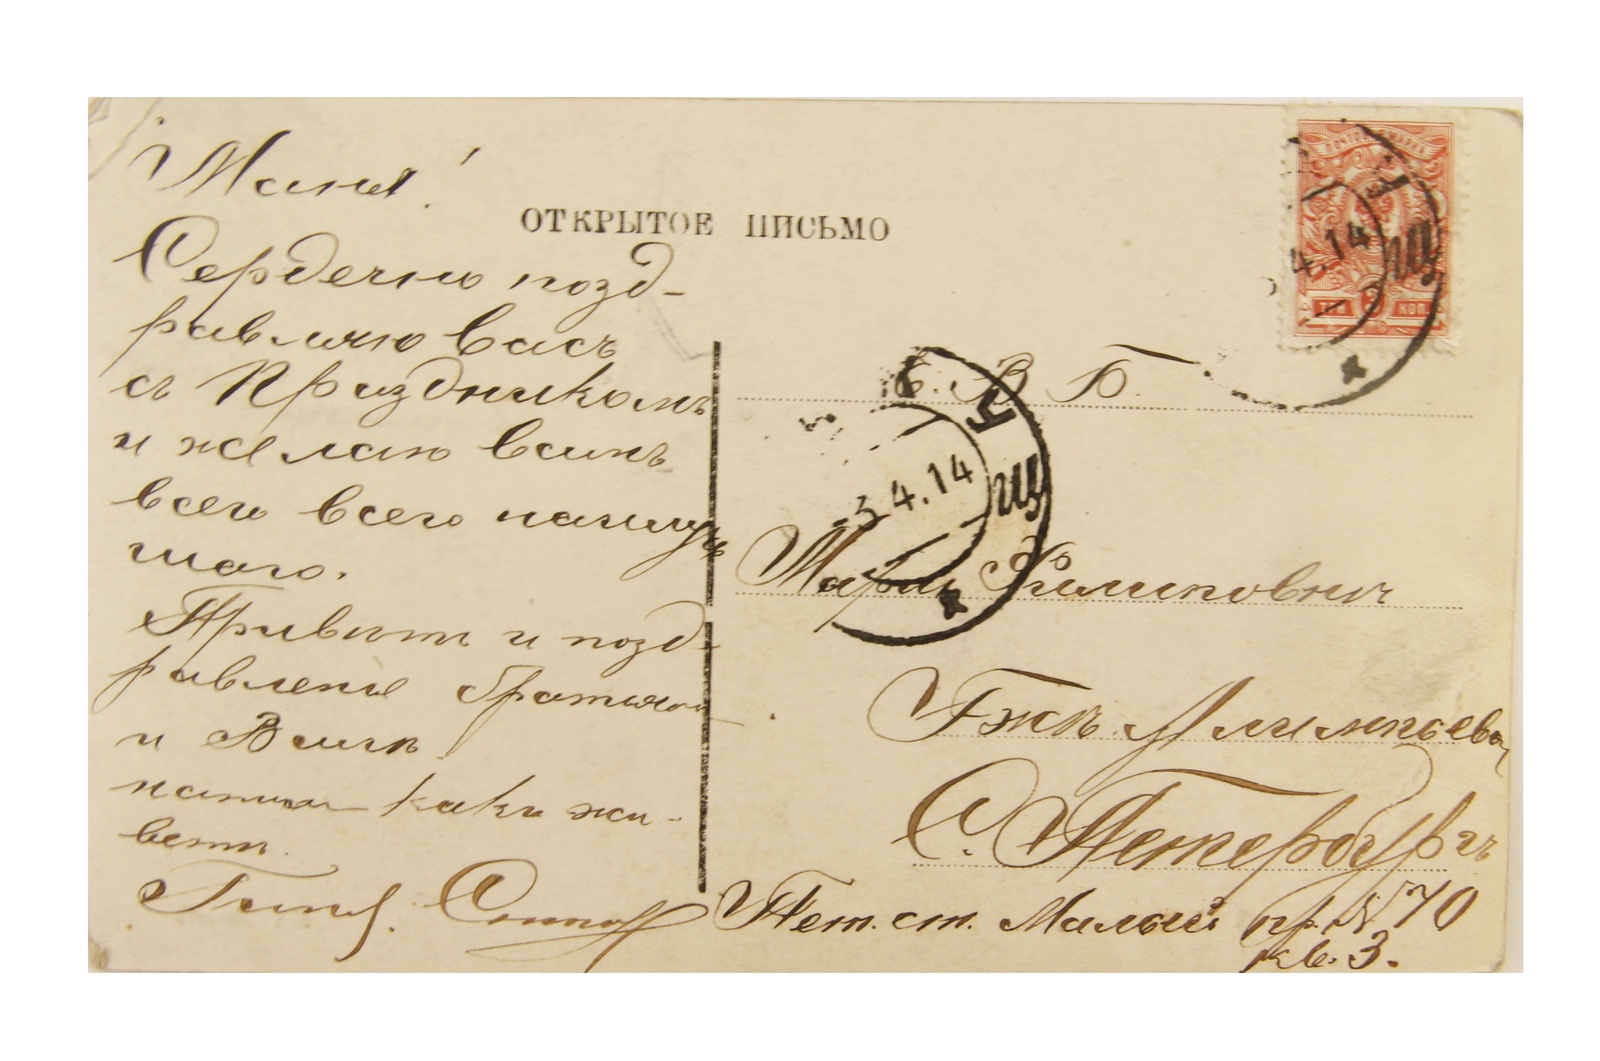 Маня!
ОТКРЫТОЕ ПИСЬМО
Сердечно позд-
равляю васъ
съ Праздникомъ
и желаю вамъ
всего всего наилуч
шаго.
Приветъ и позд-
равленіе братьям
и Вали
напиши какъ жи-
вети.
3 КОП
4.14
Е. В. Б.
3.4.14
Марiи Филиповни
Гжѣ.
С. Петербургъ
Пет. ст. Малый пр. № 70
кв. 3.